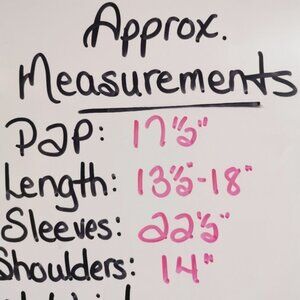 Approx.
Measurements
PaP: 17½"
Length: 13½-18"
Sleeves: 22½"
Shoulders: 14"